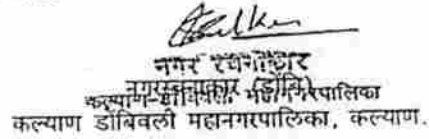 नगर रचनाकार
नगररचनाकार (डोंबि)
कल्याण-डोंबिवली महानगरपालिका
कल्याण डोंबिवली महानगरपालिका, कल्याण.